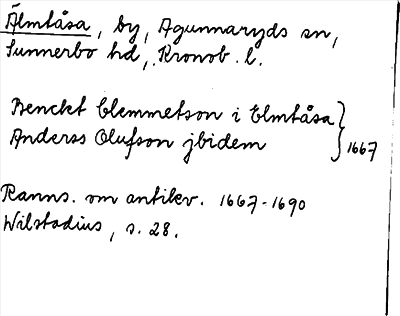 Älmtåsa, by, Agunnaryds sn,
Sunnerbo hd, Kronob. l.
Benckt Clemmetson i Elmtåsa
Anderss Olufson jbidem } 1667
Ranns. om antikv. 1667-1690
Wilstadius, s. 28.